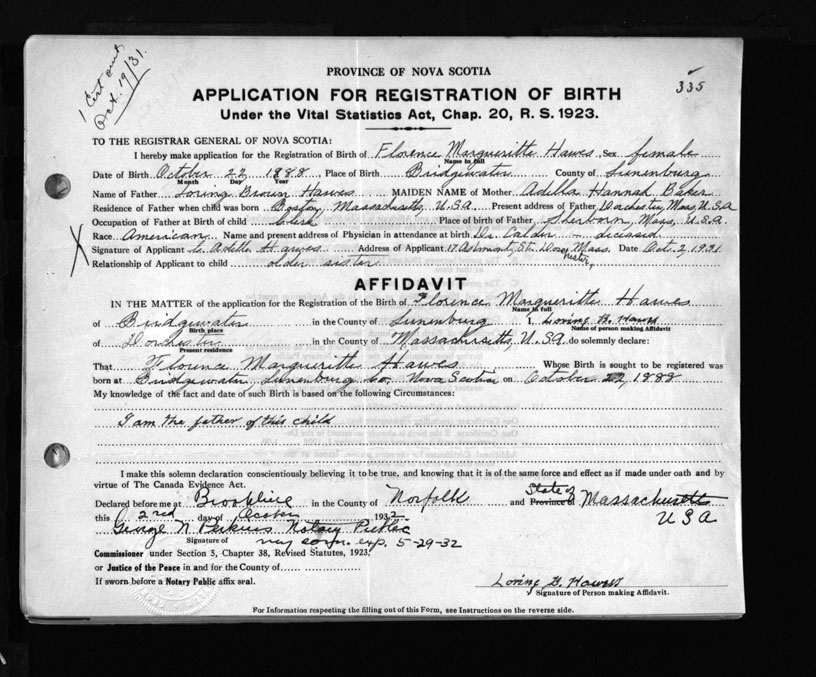 1 Cert
Oct. 19/31.
335
PROVINCE OF NOVA SCOTIA
APPLICATION FOR REGISTRATION OF BIRTH
Under the Vital Statistics Act, Chap. 20, R. S. 1923.
TO THE REGISTRAR GENERAL OF NOVA SCOTIA:
I hereby make application for the Registration of Birth of Florence Margueritte Hawes Sex female
Name in full
Date of Birth October 22 1888 Place of Birth Bridgewater County of Lunenburg
Month Day Year
Name of Father Loring Brown Hawes MAIDEN NAME of Mother Adella Hannah Baker
Residence of Father when child was born Boston, Massachusetts, U.S.A. Present address of Father Dorchester, Mass, U.S.A
Occupation of Father at Birth of child Clerk Place of birth of Father Sherborn, Mass, U.S.A.
Race American Name and present address of Physician in attendance at birth Dr. Calder - deceased
X Signature of Applicant Adella Hawes Address of Applicant 17 Ashmont St. Dorchester, Mass. Date Oct. 2, 1931
Relationship of Applicant to child older sister
AFFIDAVIT
IN THE MATTER of the application for the Registration of the Birth of Florence Margueritte Hawes
Name in full
of Bridgewater in the County of Lunenburg I, Loring B. Hawes
Birth place Name of person making Affidavit
of Dorchester in the County of Massachusetts, U.S.A. do solemnly declare:
Present residence
That Florence Margueritte Hawes Whose Birth is sought to be registered was
born at Bridgewater, Lunenburg Co. Nova Scotia on October 22, 1888
My knowledge of the fact and date of such Birth is based on the following Circumstances:
I am the father of this child
I make this solemn declaration conscientiously believing it to be true, and knowing that it is of the same force and effect as if made under oath and by
virtue of The Canada Evidence Act.
Declared before me at Brookline in the County of Norfolk and State of Province of Massachusetts
this 2nd day of October 193 U S A
George N Perkins Notary Public
Signature of my com. exp. 5-29-32
Commissioner under Section 3, Chapter 38, Revised Statutes, 1923,
or Justice of the Peace in and for the County of
If sworn before a Notary Public affix seal.
Loring B. Hawes
Signature of Person making Affidavit.
For Information respecting the filling out of this Form, see Instructions on the reverse side.